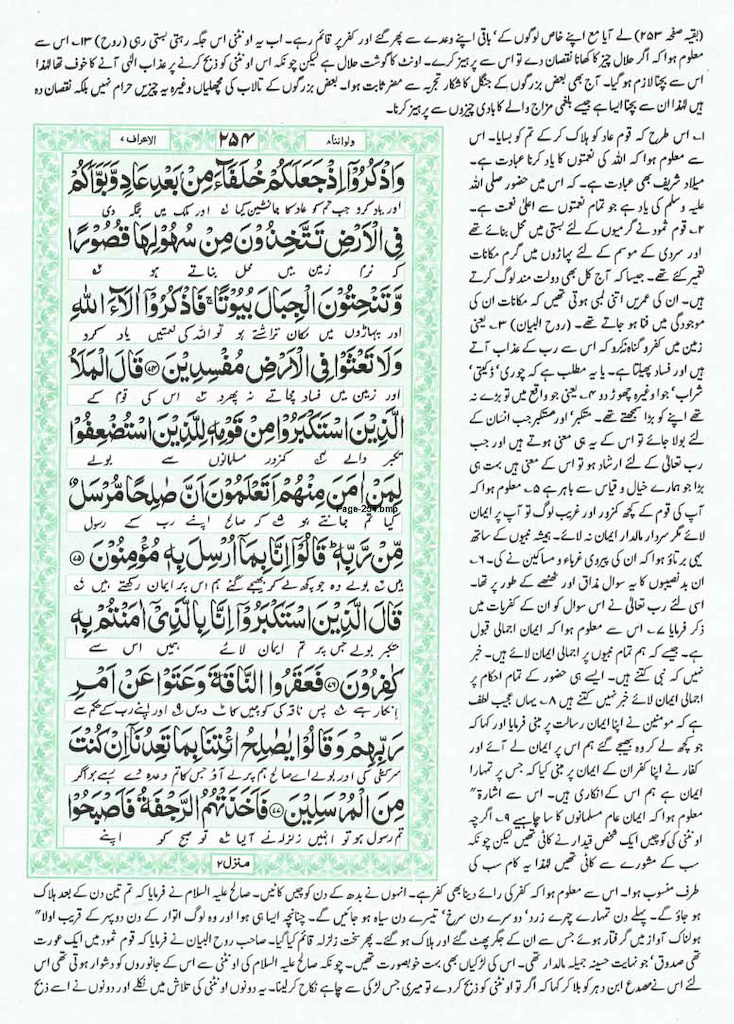 (بقیہ صفحہ ۲۵۳) لے آیا مع اپنے خاص لوگوں کے، باقی اپنے وعدے سے پھر گئے اور کفر پر قائم رہے۔ اب یہ اونٹنی اس جگہ رہتی بستی رہی (روح) ۱۳۔ اس سے
معلوم ہوا کہ اگر حلال چیز کا کھانا نقصان دے تو اس سے پرہیز کرے۔ اونٹ کا گوشت حلال ہے لیکن چونکہ اس اونٹنی کو ذبح کرنے پر عذاب الٰہی آنے کا خوف تھا لہٰذا
اس سے بچنا لازم ہو گیا۔ آج بھی بعض بزرگوں کے جنگل کا شکار تجربہ سے مضر ثابت ہوا۔ بعض بزرگوں کے تالاب کی مچھلیاں وغیرہ یہ چیزیں حرام نہیں بلکہ نقصان دہ
ہیں لہٰذا ان سے بچنا ایسا ہے جیسے بلغمی مزاج والے کا بادی چیزوں سے پرہیز کرنا۔
ولو اننا ۸
۲۵۴
الاعراف ۷
وَاذْكُرُوْٓا اِذْ جَعَلَكُمْ خُلَفَآءَ مِنْۢ بَعْدِ عَادٍ وَّبَوَّاَكُمْ
اور یاد کرو جب تم کو عاد کا جانشین کیا اور ملک میں جگہ دی
فِى الْاَرْضِ تَتَّخِذُوْنَ مِنْ سُهُوْلِهَا قُصُوْرًا
کہ نرم زمین میں محل بناتے ہو
وَّتَنْحِتُوْنَ الْجِبَالَ بُيُوْتًا ۚ فَاذْكُرُوْٓا اٰلَآءَ اللّٰهِ
اور پہاڑوں میں مکان تراشتے ہو تو اللہ کی نعمتیں یاد کرو
وَلَا تَعْثَوْا فِى الْاَرْضِ مُفْسِدِيْنَ ۝۷۴ قَالَ الْمَلَاُ
اور زمین میں فساد مچاتے نہ پھرو اس کی قوم کے
الَّذِيْنَ اسْتَكْبَرُوْا مِنْ قَوْمِهٖ لِلَّذِيْنَ اسْتُضْعِفُوْا
تکبر والے کمزور مسلمانوں سے بولے
لِمَنْ اٰمَنَ مِنْهُمْ اَتَعْلَمُوْنَ اَنَّ صٰلِحًا مُّرْسَلٌ
کیا تم جانتے ہو کہ صالح اپنے رب کے رسول
Page-254.bmp
مِّنْ رَّبِّهٖ ؕ قَالُوْٓا اِنَّا بِمَآ اُرْسِلَ بِهٖ مُؤْمِنُوْنَ ۝۷۵
ہیں بولے وہ جو کچھ لے کر بھیجے گئے ہم اس پر ایمان رکھتے ہیں
قَالَ الَّذِيْنَ اسْتَكْبَرُوْٓا اِنَّا بِالَّذِىْٓ اٰمَنْتُمْ بِهٖ
متکبر بولے جس پر تم ایمان لائے ہمیں اس سے
كٰفِرُوْنَ ۝۷۶ فَعَقَرُوا النَّاقَةَ وَعَتَوْا عَنْ اَمْرِ
انکار ہے پس ناقہ کی کوچیں کاٹ دیں اور اپنے رب کے حکم سے
رَبِّهِمْ وَقَالُوْا يٰصٰلِحُ ائْتِنَا بِمَا تَعِدُنَآ اِنْ كُنْتَ
سرکشی کی اور بولے اے صالح ہم پر لے آؤ جس کا تم وعدہ دے رہے ہو اگر
مِنَ الْمُرْسَلِيْنَ ۝۷۷ فَاَخَذَتْهُمُ الرَّجْفَةُ فَاَصْبَحُوْا
تم رسول ہو تو انہیں زلزلہ نے آلیا تو صبح کو اپنے
منزل ۲
۱۔ اس طرح کہ قوم عاد کو ہلاک کر کے تم کو بسایا۔ اس
سے معلوم ہوا کہ اللہ کی نعمتوں کا یاد کرنا عبادت ہے۔
میلاد شریف بھی عبادت ہے۔ کہ اس میں حضور صلی اللہ
علیہ وسلم کی یاد ہے جو تمام نعمتوں سے اعلیٰ نعمت ہے۔
۲۔ قوم ثمود نے گرمیوں کے لئے بستی میں محل بنائے تھے
اور سردی کے موسم کے لئے پہاڑوں میں گرم مکانات
تعمیر کئے تھے۔ جیسا کہ آج کل بھی دولت مند لوگ کرتے
ہیں۔ ان کی عمریں اتنی لمبی ہوتی تھیں کہ مکانات ان کی
موجودگی میں فنا ہو جاتے تھے۔ (روح البیان) ۳۔ یعنی
زمین میں کفر و گناہ نہ کرو کہ اس سے رب کے عذاب آتے
ہیں اور فساد پھیلتا ہے۔ یا یہ مطلب ہے کہ چوری، ڈکیتی،
شراب، جوا وغیرہ چھوڑ دو ۴۔ یعنی جو واقع میں تو بڑے نہ
تھے اپنے کو بڑا سمجھتے تھے۔ متکبر، اور مستکبر جب انسان کے
لئے بولا جائے تو اس کے یہ ہی معنی ہوتے ہیں اور جب
رب تعالیٰ کے لئے ارشاد ہو تو اس کے معنی ہیں بہت ہی
بڑا جو ہمارے خیال و قیاس سے باہر ہے ۵۔ معلوم ہوا کہ
آپ کی قوم کے کچھ کمزور اور غریب لوگ تو آپ پر ایمان
لائے مگر سردار مالدار ایمان نہ لائے۔ ہمیشہ نبیوں کے ساتھ
یہی برتاؤ ہوا کہ ان کی پیروی غرباء و مساکین نے کی۔ ۶۔
ان بد نصیبوں کا یہ سوال مذاق اور ٹھٹھے کے طور پر تھا۔
اسی لئے رب تعالیٰ نے اس سوال کو ان کے کفریات میں
ذکر فرمایا ۷۔ اس سے معلوم ہوا کہ ایمان اجمالی قبول
ہے۔ جیسے کہ ہم تمام نبیوں پر اجمالی ایمان لائے ہیں۔ خبر
نہیں کہ نبی کتنے ہیں۔ ایسے ہی حضور کے تمام احکام پر
اجمالی ایمان لائے خبر نہیں کتنے ہیں ۸۔ یہاں عجیب لطف
ہے کہ مومنین نے اپنا ایمان رسالت پر مبنی فرمایا اور کہا کہ
جو کچھ لے کر وہ بھیجے گئے ہم اس پر ایمان لے آئے اور
کفار نے اپنا کفر ان کے ایمان پر مبنی کیا کہ جس پر تمہارا
ایمان ہے ہم اس کے انکاری ہیں۔ اس سے اشارۃ"
معلوم ہوا کہ ایمان عام مسلمانوں کا سا چاہیے ۹۔ اگرچہ
اونٹنی کی کوچیں ایک شخص قیدار نے کاٹی تھیں لیکن چونکہ
سب کے مشورے سے کاٹی تھیں لہٰذا یہ کام سب کی
طرف منسوب ہوا۔ اس سے معلوم ہوا کہ کفر کی رائے دینا بھی کفر ہے۔ انہوں نے بدھ کے دن کوچیں کاٹیں۔ صالح علیہ السلام نے فرمایا کہ تم تین دن کے بعد ہلاک
ہو جاؤ گے۔ پہلے دن تمہارے چہرے زرد، دوسرے دن سرخ، تیسرے دن سیاہ ہو جائیں گے۔ چنانچہ ایسا ہی ہوا اور وہ لوگ اتوار کے دن دوپہر کے قریب اولا"
ہولناک آواز میں گرفتار ہوئے جس سے ان کے جگر پھٹ گئے اور ہلاک ہو گئے۔ پھر سخت زلزلہ قائم کیا گیا۔ صاحب روح البیان نے فرمایا کہ قوم ثمود میں ایک عورت
تھی صدوق، جو نہایت حسینہ جمیلہ مالدار تھی۔ اس کی لڑکیاں بھی بہت خوبصورت تھیں۔ چونکہ صالح علیہ السلام کی اونٹنی سے اس کے جانوروں کو دشوار ہوتی تھی اس
لئے اس نے مصدع ابن دہر کو بلا کر کہا کہ اگر تو اونٹنی کو ذبح کر دے تو میری جس لڑکی سے چاہے نکاح کر لینا۔ یہ دونوں اونٹنی کی تلاش میں نکلے اور دونوں نے اسے ذبح